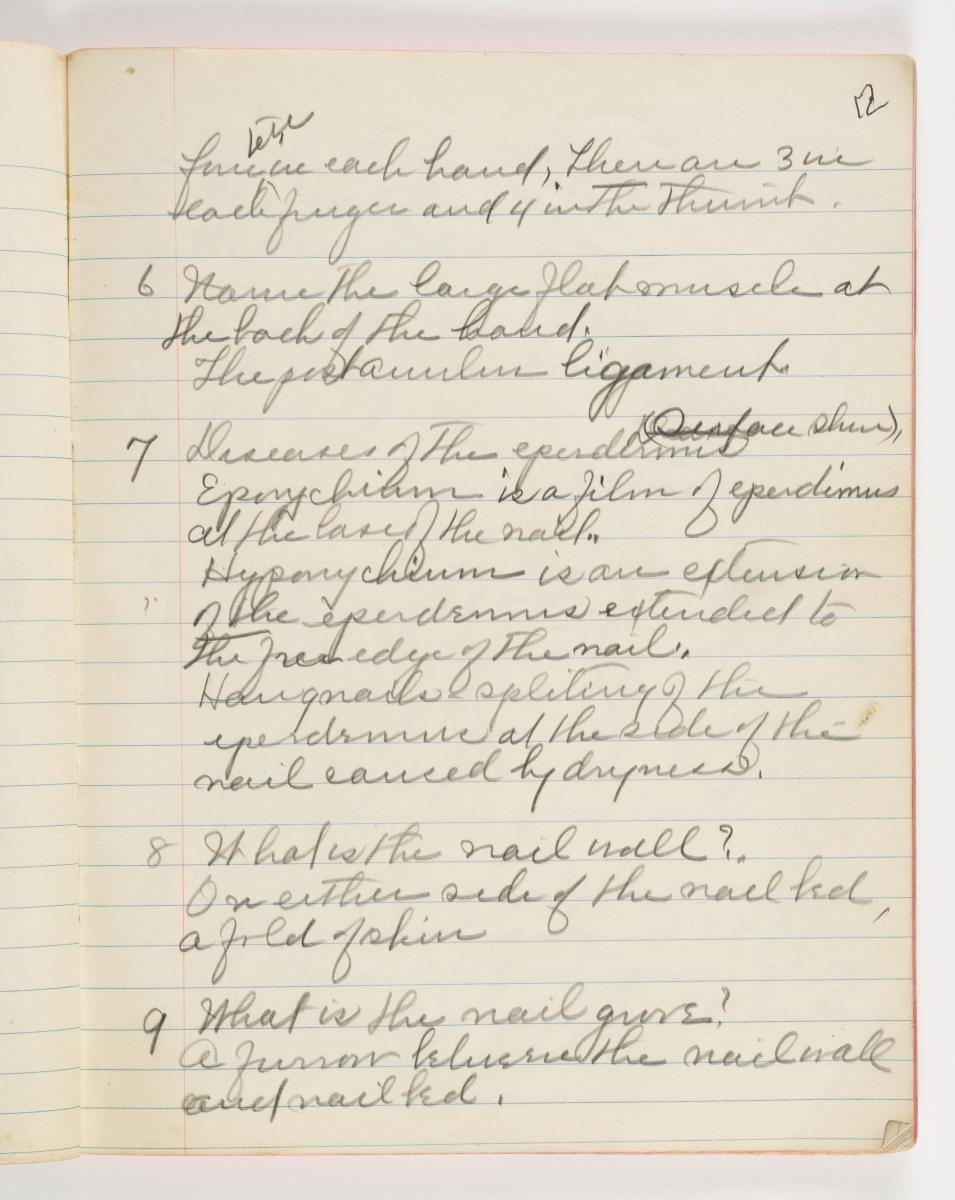 12
four in each hand, There are 3 in
each finger and 4 in the Thumb.
6 Name the large flat muscle at
the back of the hand.
The post annular ligament.
7 Diseases of the eperdermis (Surface skin),
Eponychium is a film of eperdimus
at the base of the nail.
Hyponychium is an extension
of the eperdermus extended to
the free edge of the nail.
Hangnails - spliting of the
eperdermus at the side of the
nail caused by dryness.
8 What is the nail wall?
On either side of the nail bed,
a fold of skin
9 What is the nail grove?
A furrow between the nail wall
and nail bed.